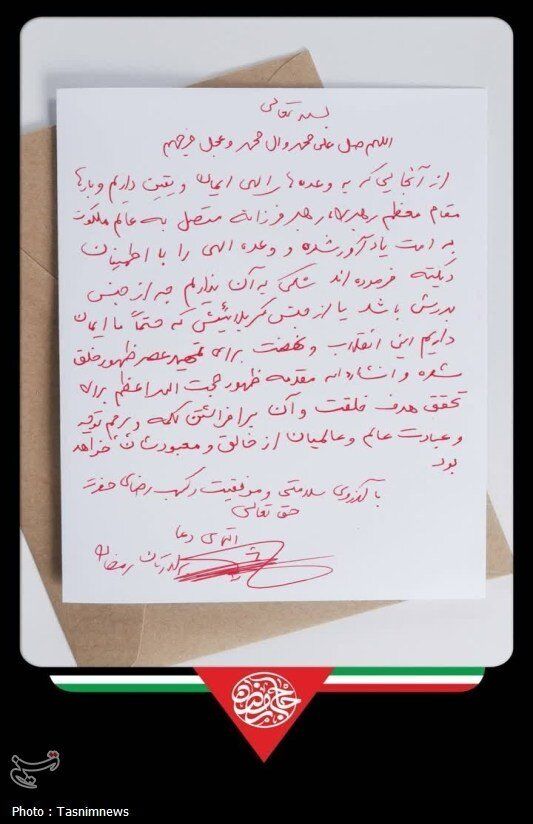 بسمه تعالی
اللهم صل علی محمد وال محمد و عجل فرجهم
از آنجایی که به وعده های الهی ایمان و یقین داریم و بارها
مقام معظم رهبری، رهبر فرزانه متصل به عالم ملکوت
به امت یادآور شده و وعده الهی را با اطمینان
دیکته فرموده اند شکی به آن نداریم چه از جنس
بدرش باشد یا از جنس کربلائیش که حتماً ما ایمان
داریم این انقلاب و نهضت برای تمهید عصر ظهور خلق
شده و انشاءاله مقدمه ظهور حجت الله اعظم برای
تحقق هدف خلقت و آن برافراشتن کلمه و پرچم توحید
و عبادت عالم و عالمیان از خالق و معبودشان خواهد
بود
با آرزوی سلامتی و موفقیت و کسب رضای حضرت
حق تعالی
التماس دعا
رمضان
حاج رمضان
تسنیم
Photo : Tasnimnews